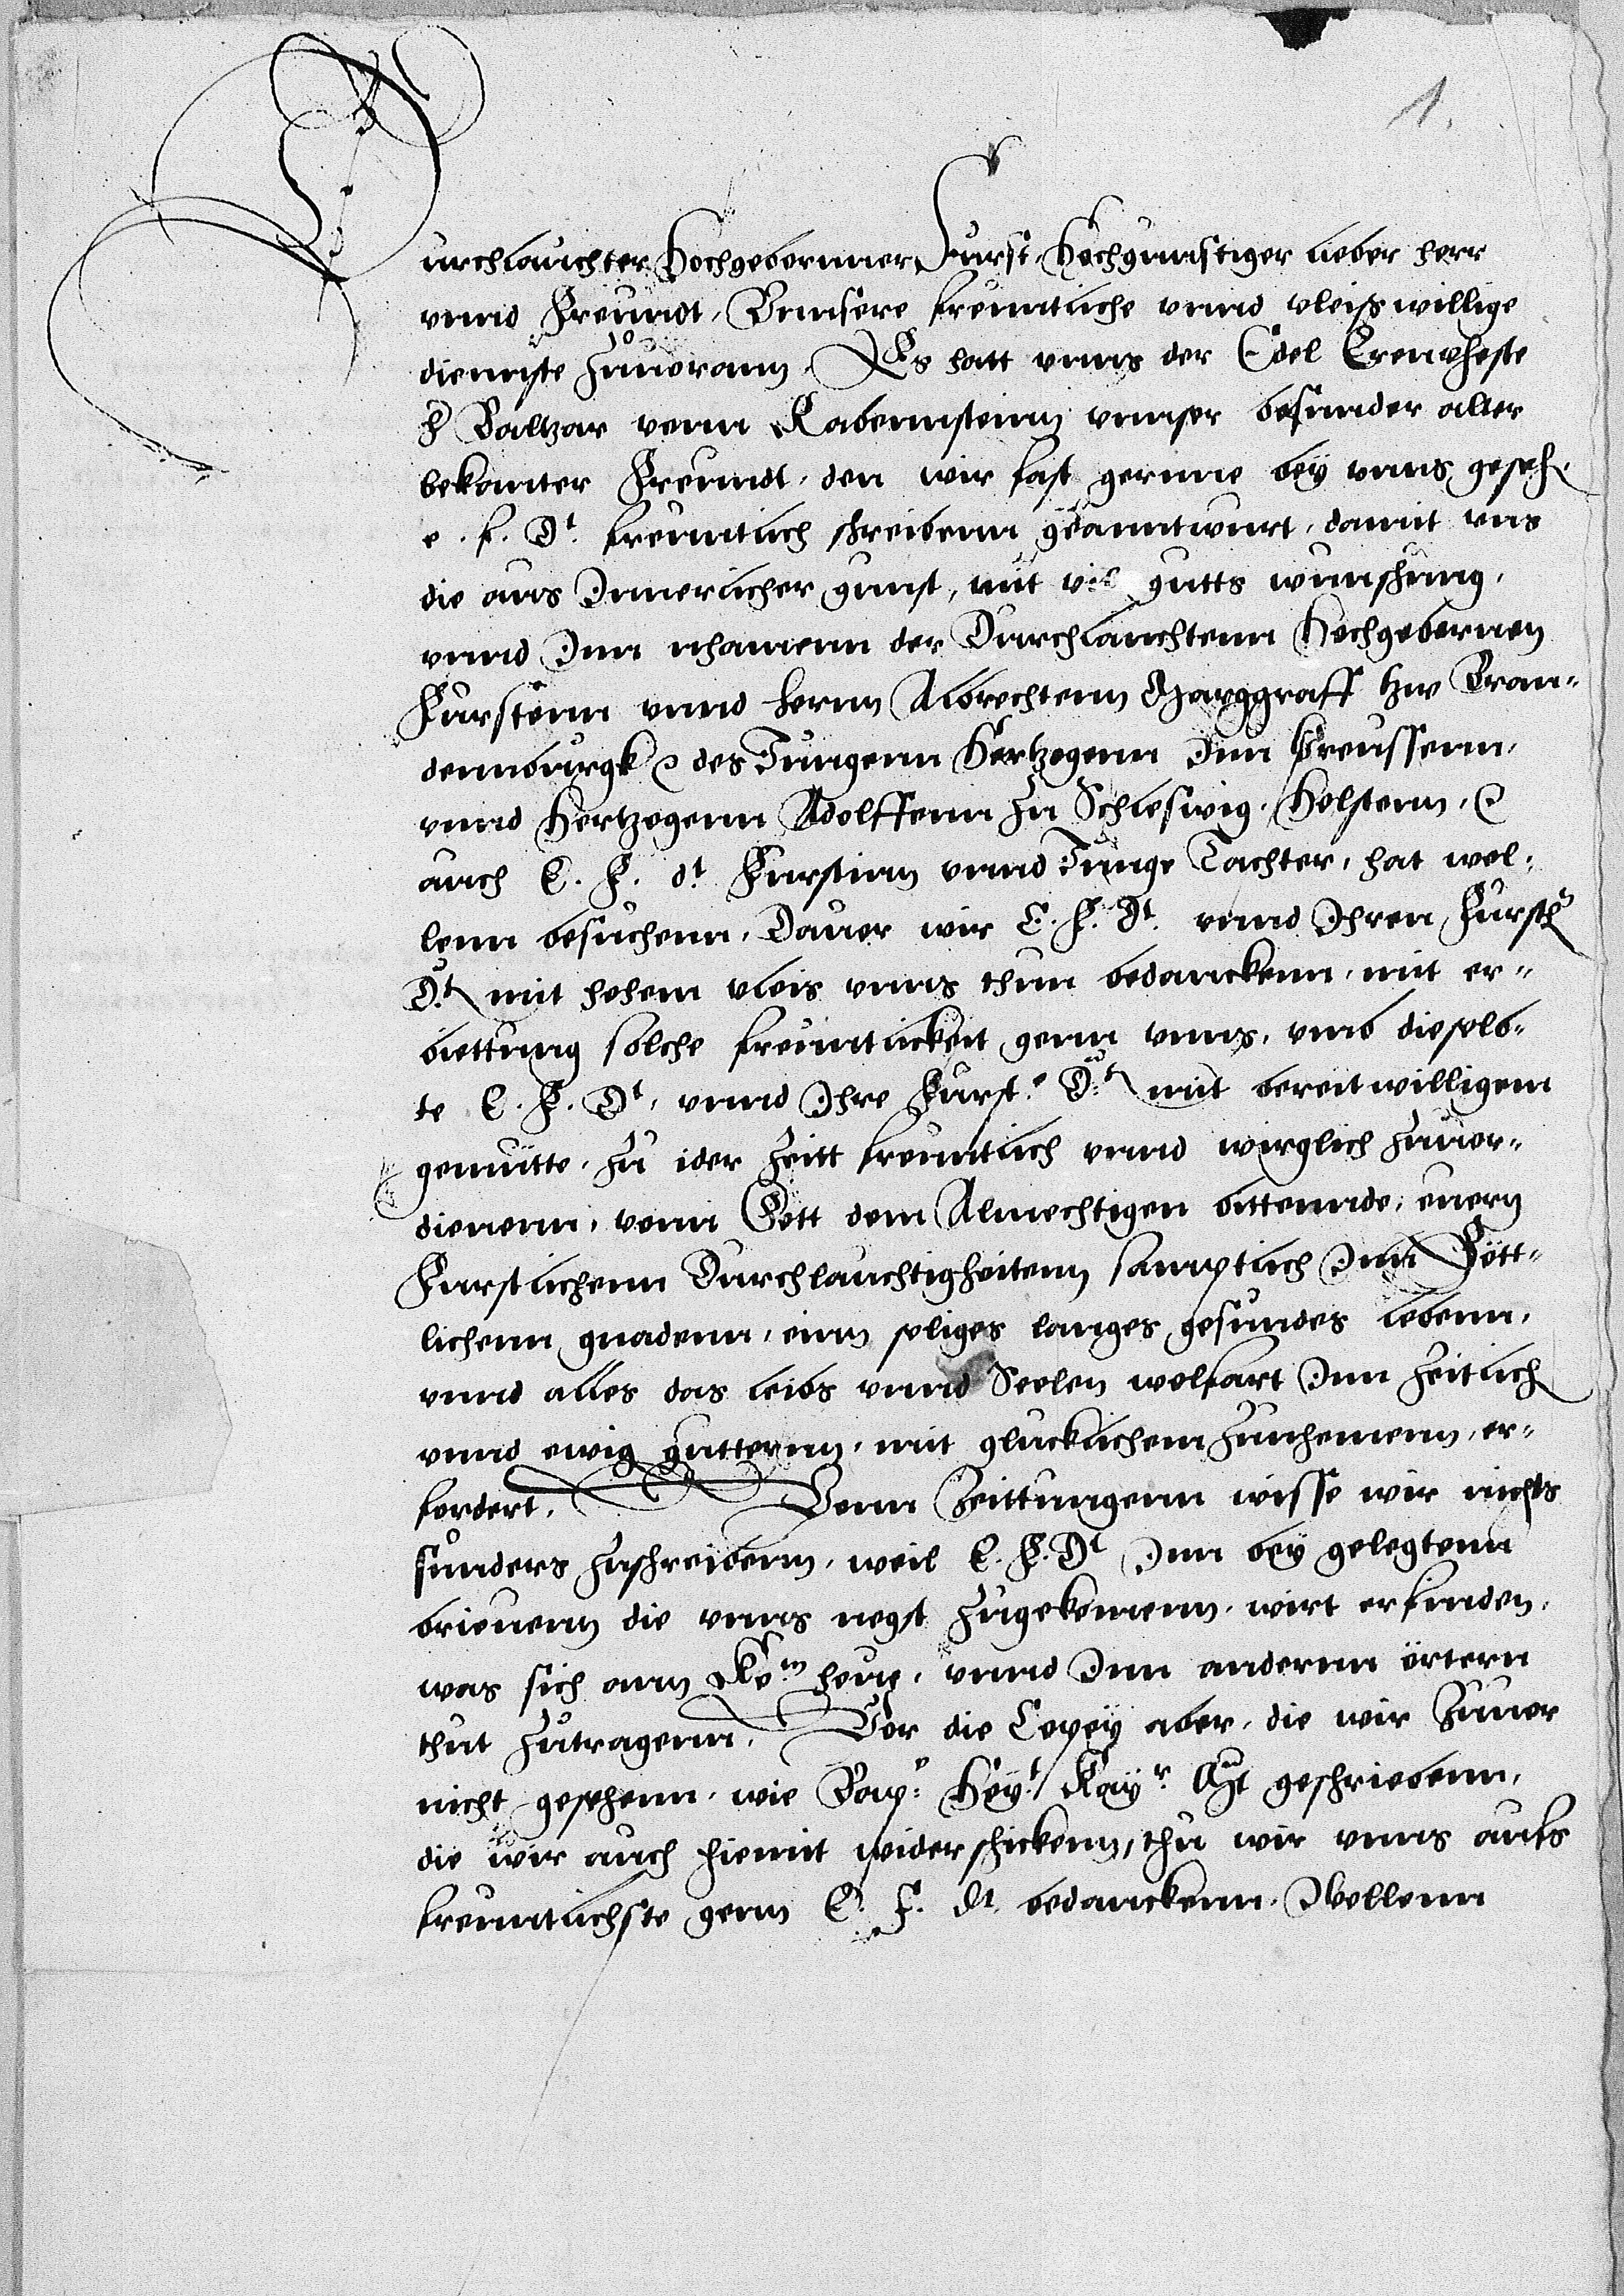 1.
Durchlauchter Hochgebornner Furst, Hochgunstiger lieber herr
vnnd Freundt, Vnnsere freuntliche vnnd vleiss willige
diennste Zuuorann, Es hatt vnns der Edel Erenpheste
H Baltzar vonn Rabennsteinn vnnser besunder alter
bekanter Freundt, den wir fast gernne bey vnns geseh,
e. f. Dt. freuntlich schreibenn geanntwurt, damit vns
die aus Innerlicher gunst, mit vil gutts wunschung,
vnnd Inn nhamenn der Durchlauchtenn Hochgebornen
Furstenn vnnd hernn Albrechtenn Marggraff tzw Bran-
dennburgk des Jungenn Hertzogenn Inn Preussenn,
vnnd Hertzogenn Adolffenn zu Schleswig, Holstenn,
auch E. F. dt. Furstinn vnnd Junge Tachter, hat wol-
lenn besuchenn, Dauor wir E. F. Dt. vnnd Ihren Furstl
Dt. mit hohem vleis vnns thun bedanckenn, mit er-
biettung solche freuntlickeit genn vnns, vmb dieselb-
te E. F. Dt, vnnd Ihre Furst. Dt. mit bereitwilligem
gemutte, zu ider Zeitt freuntlich vnnd wirglich zuuor-
dienenn, vonn Gott dem Almechtigen bittennde, euern
Furstlichenn Durchlauchtigheitenn samptlich Inn Gott-
lichenn gnadenn, einn seliges langes gesundes lebenn,
vnnd alles das leibs vnnd Seelen wolfart Inn zeitlich
vnnd ewig gutternn, mit glucklichem zunhemenn, er-
fordert. Vonn Zeittungenn wisse wir nichts
sunders zuschreibenn, weil E. F. Dt Inn bey gelegtenn
brieuenn die vnns negst zugekomenn, wirt erfinden,
was sich ann Ko.n houe, vnnd Inn andernn örtern
thut zutragenn. Vor die Copey aber, die wir Zuuor
nicht gesehenn, wie Bap. Hey.t Kay.r Mt geschriebenn,
die wir auch hiemit widerschickenn, thu wir vnns aufs
freuntlichste genn E. F. dt. bedanckenn. Wollenn